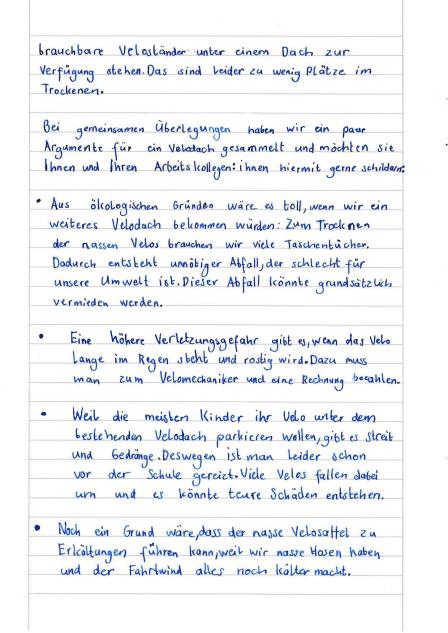 brauchbare Veloständer unter einem Dach zur
Verfügung stehen. Das sind leider zu wenig Plätze im
Trockenen.
Bei gemeinsamen Überlegungen haben wir ein paar
Argumente für ein Velodach gesammelt und möchten sie
Ihnen und Ihren Arbeitskollegen:innen hiermit gerne schildern:
• Aus ökologischen Gründen wäre es toll, wenn wir ein
weiteres Velodach bekommen würden: Zum Trocknen
der nassen Velos brauchen wir viele Taschentücher.
Dadurch entsteht unnötiger Abfall, der schlecht für
unsere Umwelt ist. Dieser Abfall könnte grundsätzlich
vermieden werden.
• Eine höhere Verletzungsgefahr gibt es, wenn das Velo
lange im Regen steht und rostig wird. Dazu muss
man zum Velomechaniker und eine Rechnung bezahlen.
• Weil die meisten Kinder ihr Velo unter dem
bestehenden Velodach parkieren wollen, gibt es streit
und Gedränge. Deswegen ist man leider schon
vor der Schule gereizt. Viele Velos fallen dabei
um und es könnte teure Schäden entstehen.
• Noch ein Grund wäre, dass der nasse Velosattel zu
Erkältungen führen kann, weil wir nasse Hosen haben
und der Fahrtwind alles noch kälter macht.